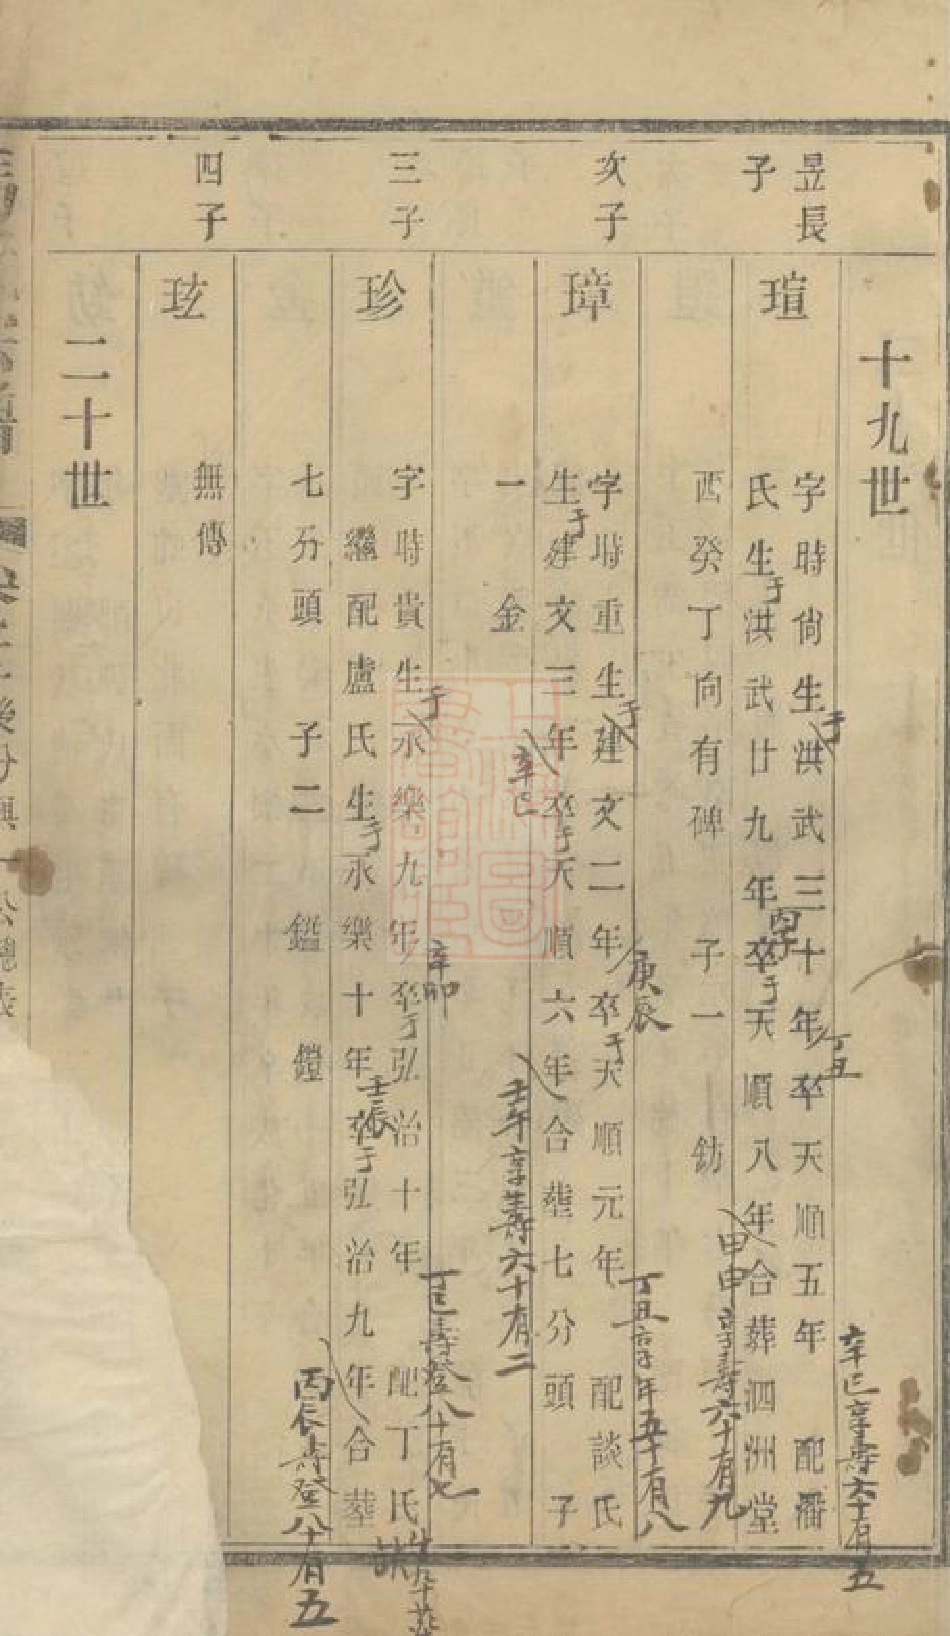 十九世
昱長
子
瑄
字時尙生于洪武三十年丁丑卒天順五年辛巳享壽六十有五 配潘
氏生于洪武廿九年丙子卒于天順八年甲申享壽六十有九合葬泗洲堂
酉癸丁向有碑 子一 鈁
次子
璋
字時重生于建文二年庚辰卒于天順元年丁丑享年五十有八 配談氏
生于建文三年辛巳卒于天順六年壬午享壽六十有二合塟七分頭 子
一 金
三子
珍
字時貴生于永樂九年辛卯卒于弘治十年丁巳壽登八十有七 配丁氏
繼配盧氏生于永樂十年壬辰卒于弘治九年丙辰壽登八十有五合塟
七分頭 子二 鎰 鏜
四子
玹
無傳
二十世